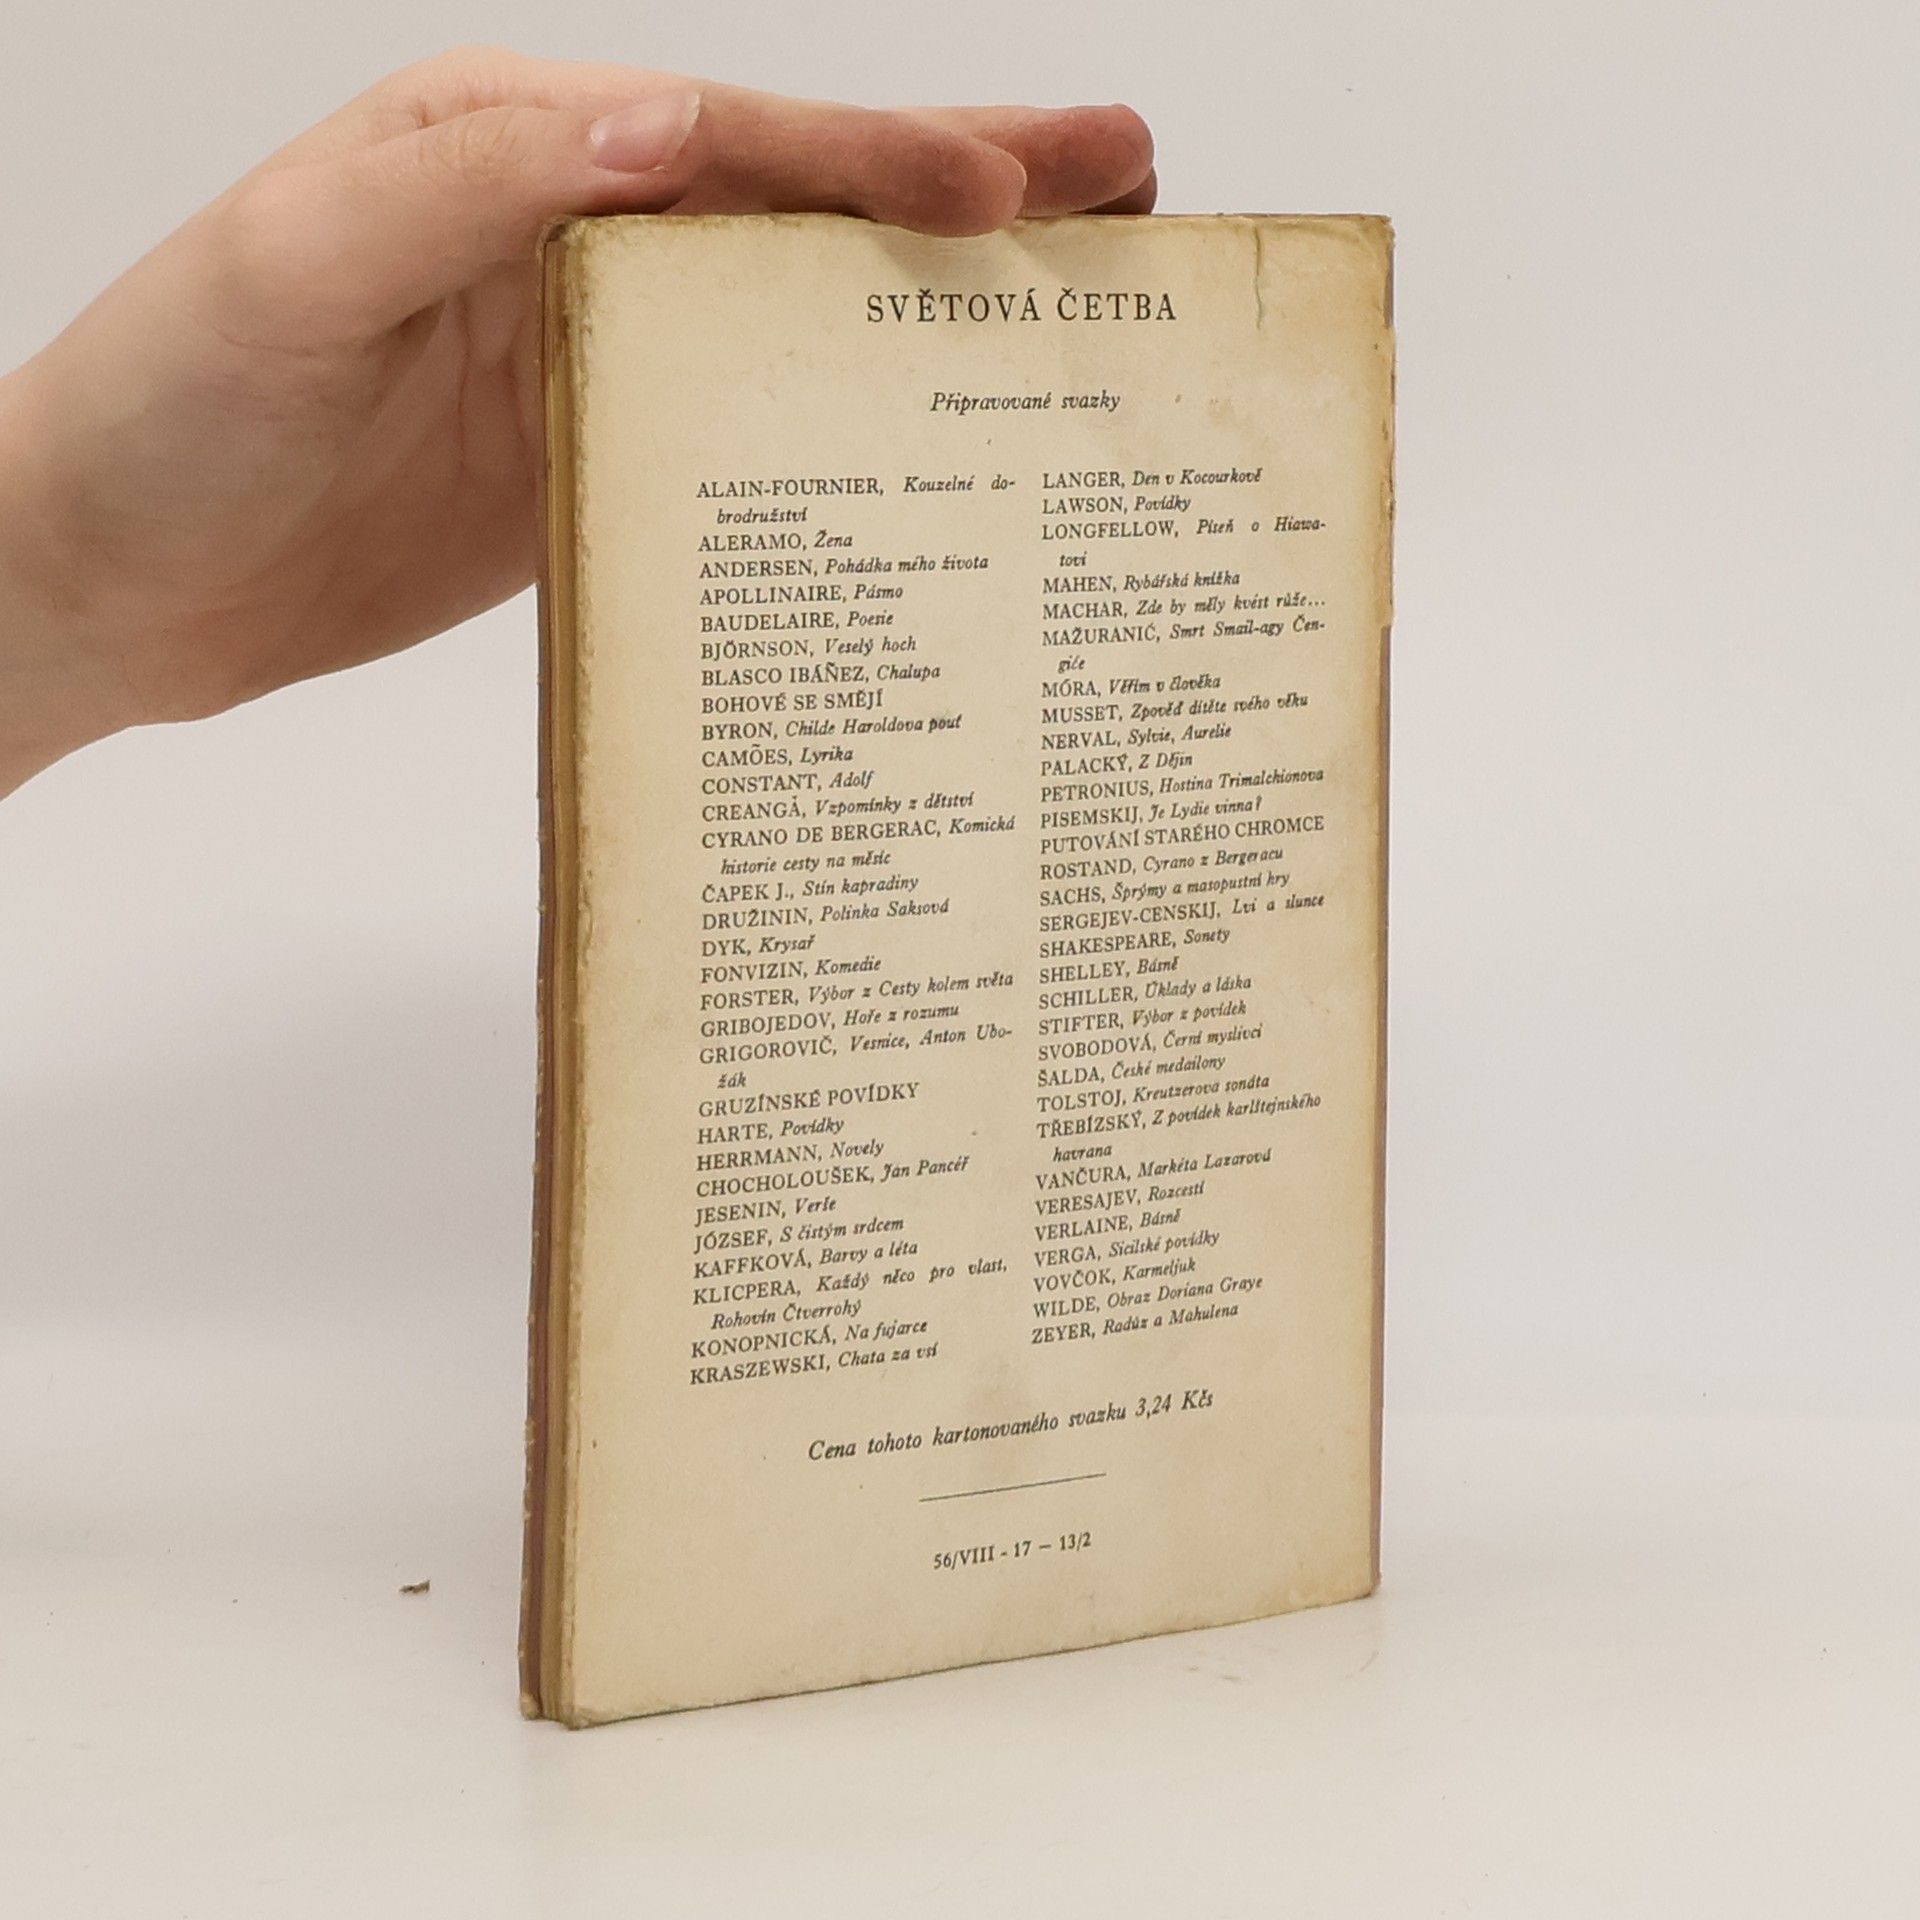 SVĚTOVÁ ČETBA
Připravované svazky
ALAIN-FOURNIER, Kouzelné do-
brodružství
ALERAMO, Žena
ANDERSEN, Pohádka mého života
APOLLINAIRE, Pásmo
BAUDELAIRE, Poesie
BJÖRNSON, Veselý hoch
BLASCO IBÁÑEZ, Chalupa
BOHOVÉ SE SMĚJÍ
BYRON, Childe Haroldova pouť
CAMÕES, Lyrika
CONSTANT, Adolf
CREANGĂ, Vzpomínky z dětství
CYRANO DE BERGERAC, Komická
historie cesty na měsíc
ČAPEK J., Stín kapradiny
DRUŽININ, Polinka Saksová
DYK, Krysař
FONVIZIN, Komedie
FORSTER, Výbor z Cesty kolem světa
GRIBOJEDOV, Hoře z rozumu
GRIGOROVIČ, Vesnice, Anton Ubo-
žák
GRUZÍNSKÉ POVÍDKY
HARTE, Povídky
HERRMANN, Novely
CHOCHOLOUŠEK, Jan Pancéř
JESENIN, Verše
JÓZSEF, S čistým srdcem
KAFFKOVÁ, Barvy a léta
KLICPERA, Každý něco pro vlast,
Rohovín Čtverrohý
KONOPNICKÁ, Na fujarce
KRASZEWSKI, Chata za vsí
LANGER, Den v Kocourkově
LAWSON, Povídky
LONGFELLOW, Píseň o Hiawa-
tovi
MAHEN, Rybářská knížka
MACHAR, Zde by měly kvést růže...
MAŽURANIĆ, Smrt Smail-agy Čen-
giće
MÓRA, Věřím v člověka
MUSSET, Zpověď dítěte svého věku
NERVAL, Sylvie, Aurelie
PALACKÝ, Z Dějin
PETRONIUS, Hostina Trimalchionova
PISEMSKIJ, Je Lydie vinna?
PUTOVÁNÍ STARÉHO CHROMCE
ROSTAND, Cyrano z Bergeracu
SACHS, Šprýmy a masopustní hry
SERGEJEV-CENSKIJ, Lvi a slunce
SHAKESPEARE, Sonety
SHELLEY, Básně
SCHILLER, Úklady a láska
STIFTER, Výbor z povídek
SVOBODOVÁ, Černí myslivci
ŠALDA, České medailony
TOLSTOJ, Kreutzerova sonáta
TŘEBÍZSKÝ, Z povídek karlštejnského
havrana
VANČURA, Markéta Lazarová
VERESAJEV, Rozcestí
VERLAINE, Básně
VERGA, Sicilské povídky
VOVČOK, Karmeljuk
WILDE, Obraz Doriana Graye
ZEYER, Radúz a Mahulena
Cena tohoto kartonovaného svazku 3,24 Kčs
56/VIII - 17 — 13/2